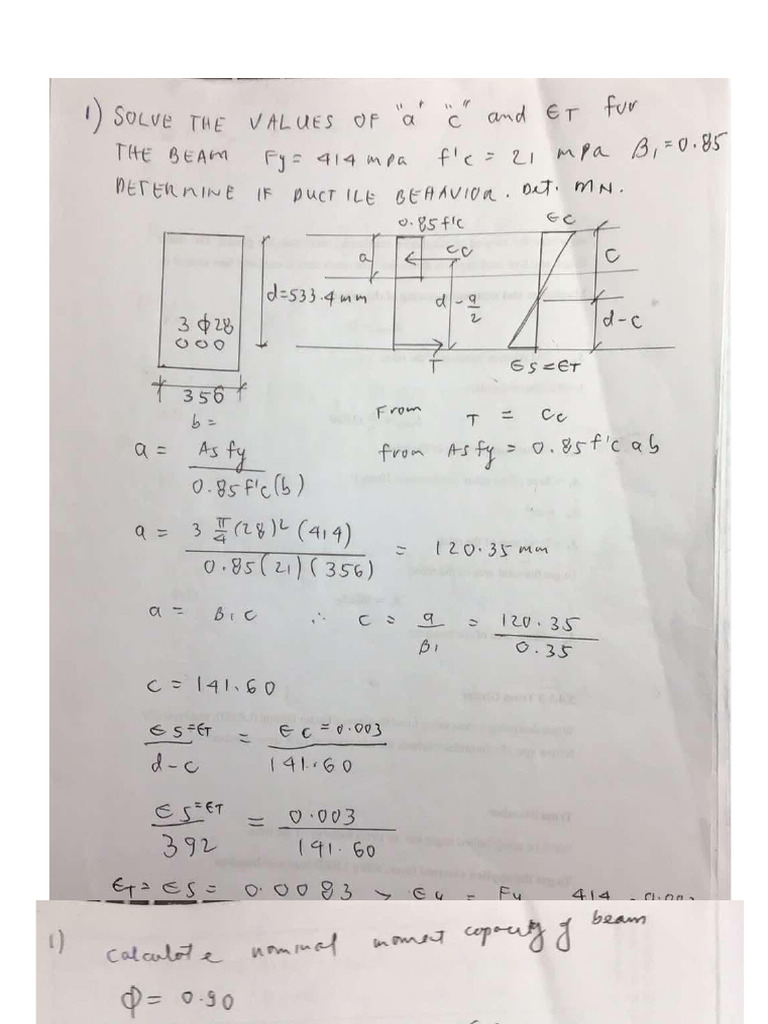 1) SOLVE THE VALUES OF "a" "c" and ϵT for
THE BEAM Fy = 414 mpa f'c = 21 mpa β1 = 0.85
DETERMINE IF DUCTILE BEHAVIOR. Det. MN.
0.85f'c ϵC
a CC C
d=533.4mm d - a/2
3 Φ28 d-c
000
T ϵS=ϵT
356
b =
From T = Cc
a = As fy / 0.85f'c(b) from Asfy = 0.85f'c ab
a = 3 π/4 (28)² (414) / 0.85(21)(356) = 120.35 mm
a = β1c ∴ c = a/β1 = 120.35/0.35
c = 141.60
ϵS=ϵT / d-c = ϵC = 0.003 / 141.60
ϵS=ϵT / 392 = 0.003 / 141.60
ϵT = ϵS = 0.0083 > ϵy = Fy 414
1) calculate nominal moment capacity of beam
Φ = 0.90